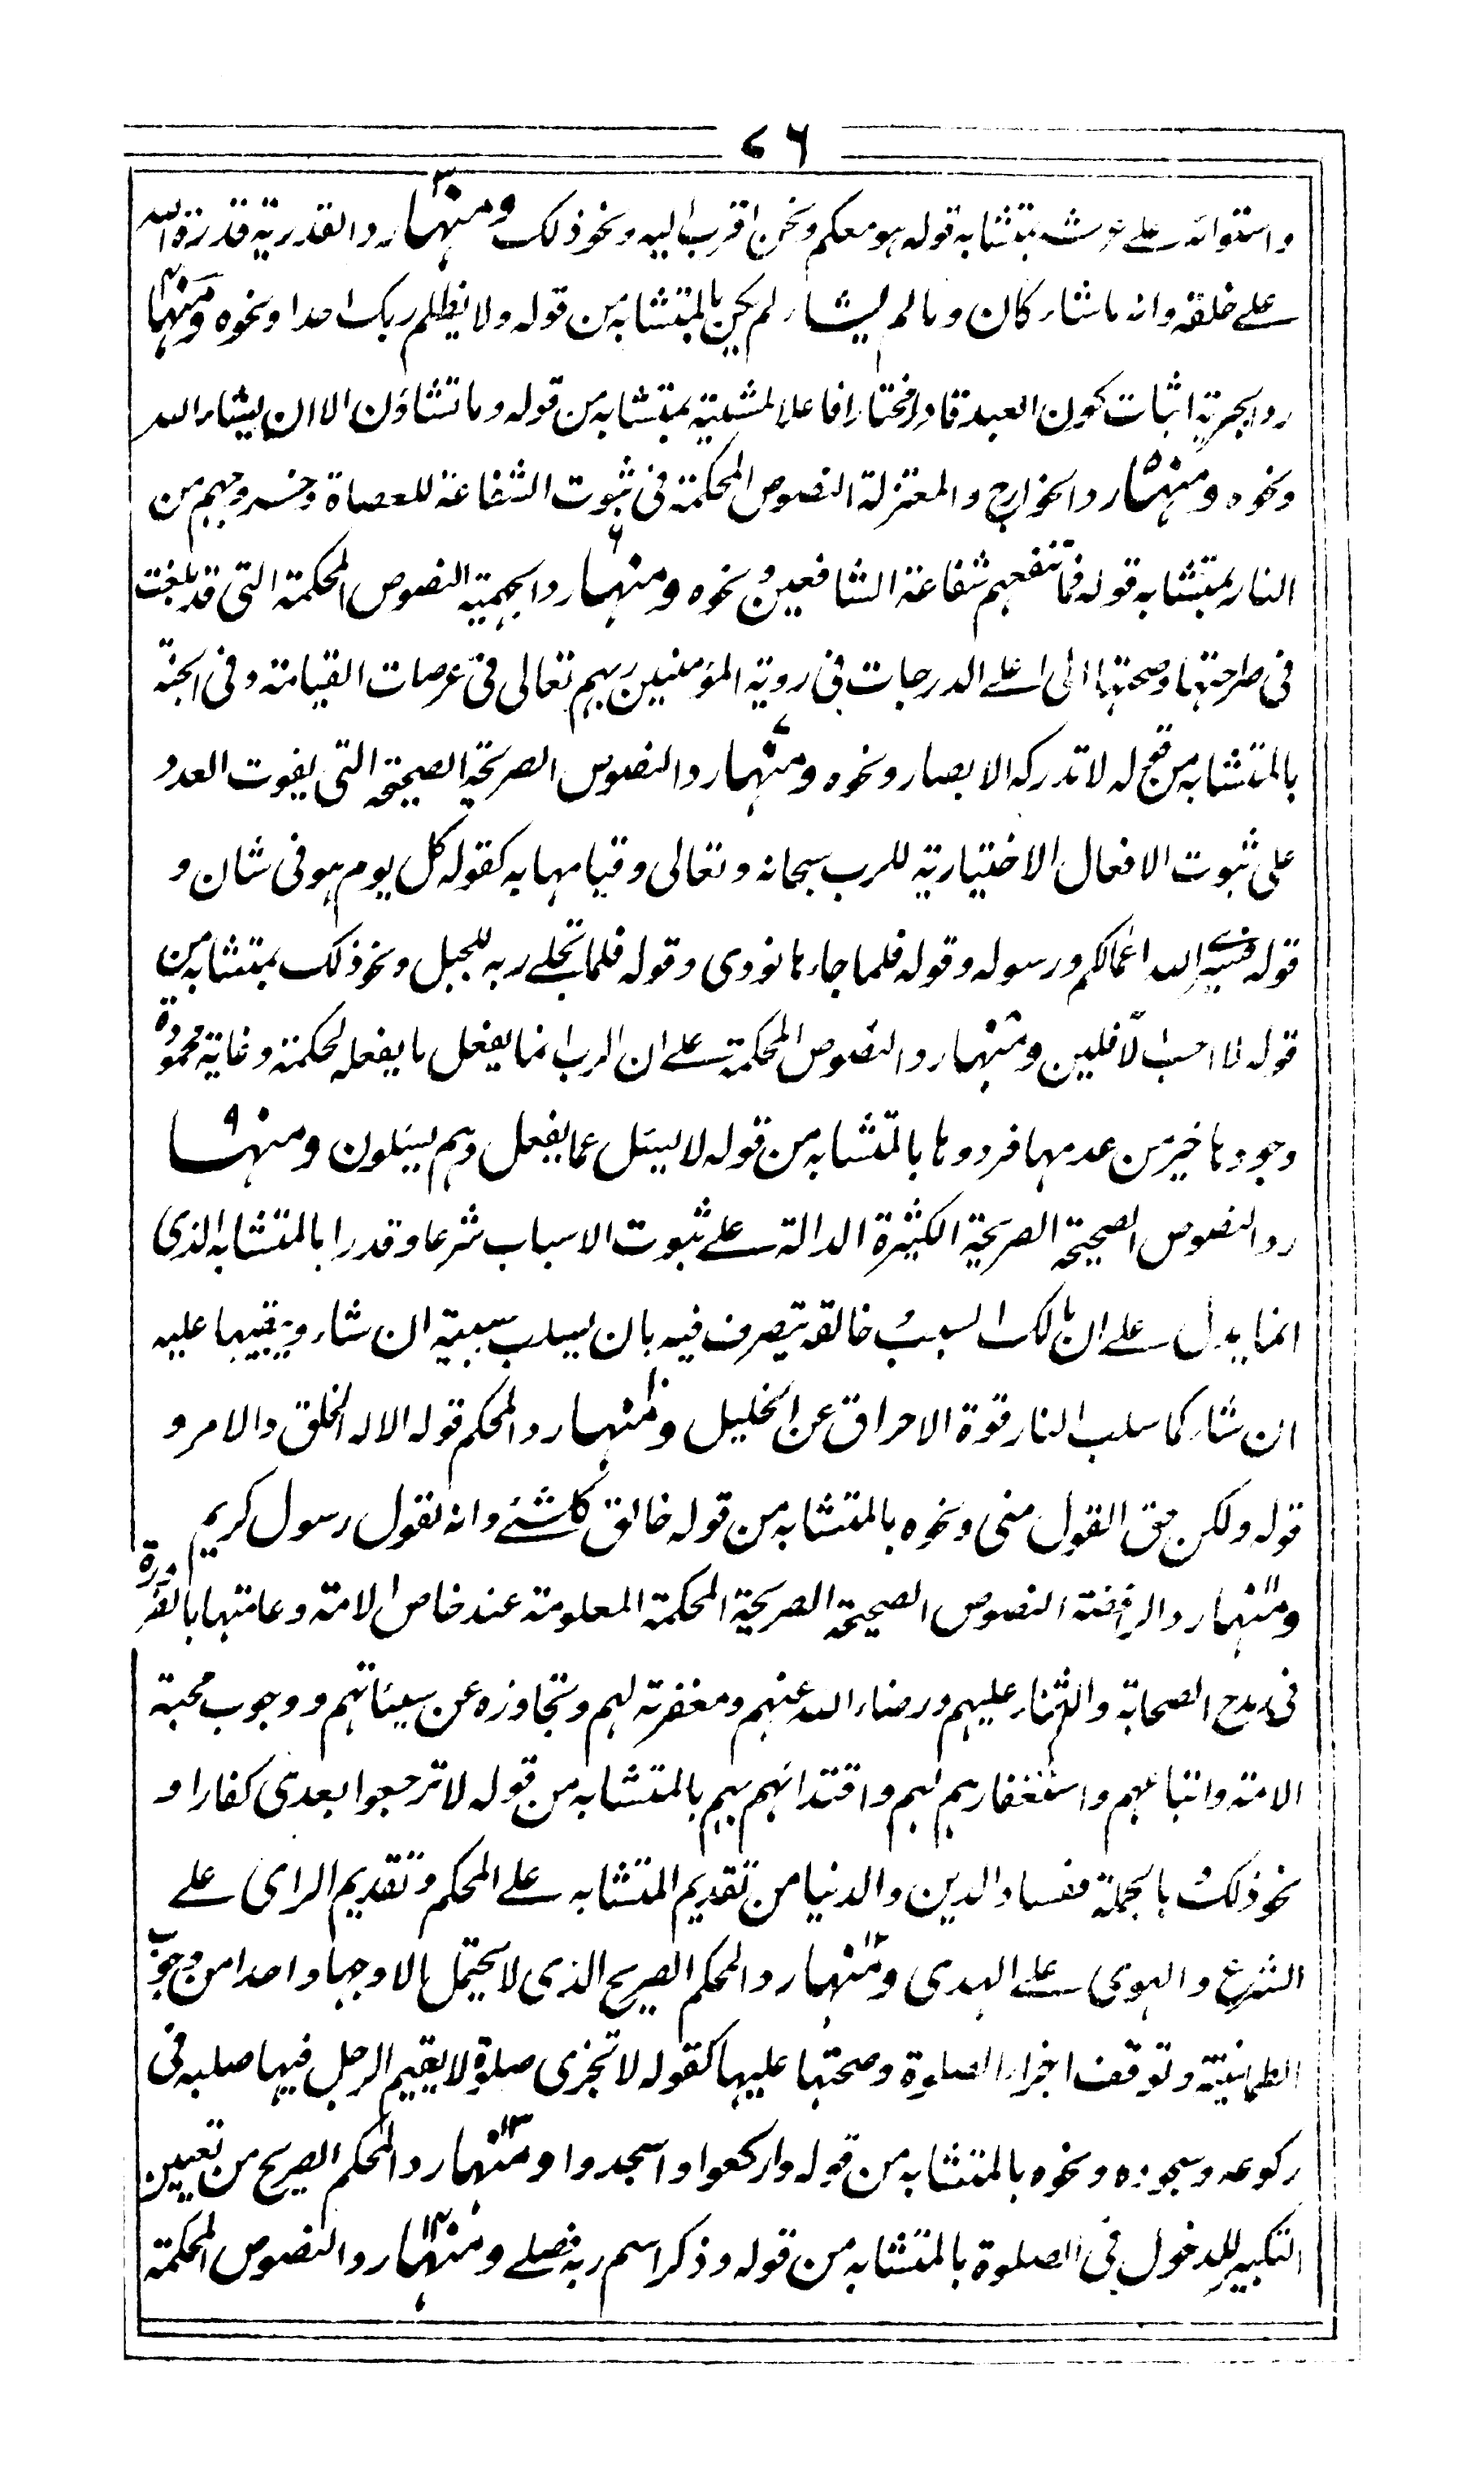 ٧٦
واستوائه على عرشه بمتشابه قوله هو معكم ونحن اقرب اليه ونحو ذلك ومنها٣ رد القدرية قدرة الله
على خلقه وانه ماشاء كان ومالم يشاء لم يكن بالمتشابه من قوله ولا يظلم ربك احدا ونحوه ومنها٤
رد الجبرية اثبات كون العبد قادرا مختارا فاعلا لمشيئته بمتشابه من قوله وما تشاؤن الا ان يشاء الله
ونحوه ومنها٥ رد الخوارج والمعتزلة النصوص المحكمة فى ثبوت الشفاعة للعصاة وخروجهم من
النار بمتشابه قوله فما تنفعهم شفاعة الشافعين ونحوه ومنها٦ رد الجهمية النصوص المحكمة التى قد بلغت
فى صراحتها وصحتها الى اعلى الدرجات فى روية المؤمنين ربهم تعالى فى عرصات القيامة وفى الجنة
بالمتشابه من قوله لا تدركه الابصار ونحوه ومنها٧ رد النصوص الصريحة الصحيحة التى يفوت العدد
على ثبوت الافعال الاختيارية للرب سبحانه وتعالى وقيامها به كقوله كل يوم هو فى شان و
قوله فسيرى الله اعمالكم ورسوله وقوله فلما جاءها نودى وقوله فلما تجلى ربه للجبل ونحو ذلك بمتشابه من
قوله لا احب الآفلين ومنها٨ رد النصوص المحكمة على ان الرب انما يفعل ما يفعله لحكمة وغاية محمودة
وجودها خير من عدمها فردوها بالمتشابه من قوله لا يسئل عما يفعل وهم يسئلون ومنها٩
رد النصوص الصحيحة الصريحة الكثيرة الدالة على ثبوت الاسباب شرعا وقدرا بالمتشابه الذى
انما يدل على ان مالك السبب وخالقه يتصرف فيه بان يسلب سببية ان شاء ويبقيها عليه
ان شاء كما سلب النار قوة الاحراق عن الخليل ومنها١٠ رد المحكم قوله الا له الخلق والامر و
قوله ولكن حق القول منى ونحوه بالمتشابه من قوله خالق كل شئ وانه لقول رسول كريم
ومنها١١ رد الرافضة النصوص الصحيحة الصريحة المحكمة المعلومة عند خاص الامة وعامتها بالضرورة
فى مدح الصحابة والثناء عليهم ورضاء الله عنهم ومغفرته لهم وتجاوزه عن سيئاتهم ووجوب محبة
الامة واتباعهم واستغفارهم لهم واقتدائهم بهم بالمتشابه من قوله لا ترجعوا بعدى كفارا و
نحو ذلك بالجملة ففساد الدين والدنيا من تقديم المتشابه على المحكم وتقديم الراى على
الشرع والهوى على الهدى ومنها١٢ رد المحكم الصريح الذى لا يحتمل الا وجها واحدا من وجوب
الطمانينة وتوقف اجزاء الصلوة وصحتها عليها كقوله لا تجزى صلوة لا يقيم الرجل فيها صلبه فى
ركوعه وسجوده ونحوه بالمتشابه من قوله واركعوا واسجدوا ومنها١٣ رد المحكم الصريح من تعيين
التكبير للدخول فى الصلوة بالمتشابه من قوله وذكر اسم ربه فصلى ومنها١٤ رد النصوص المحكمة